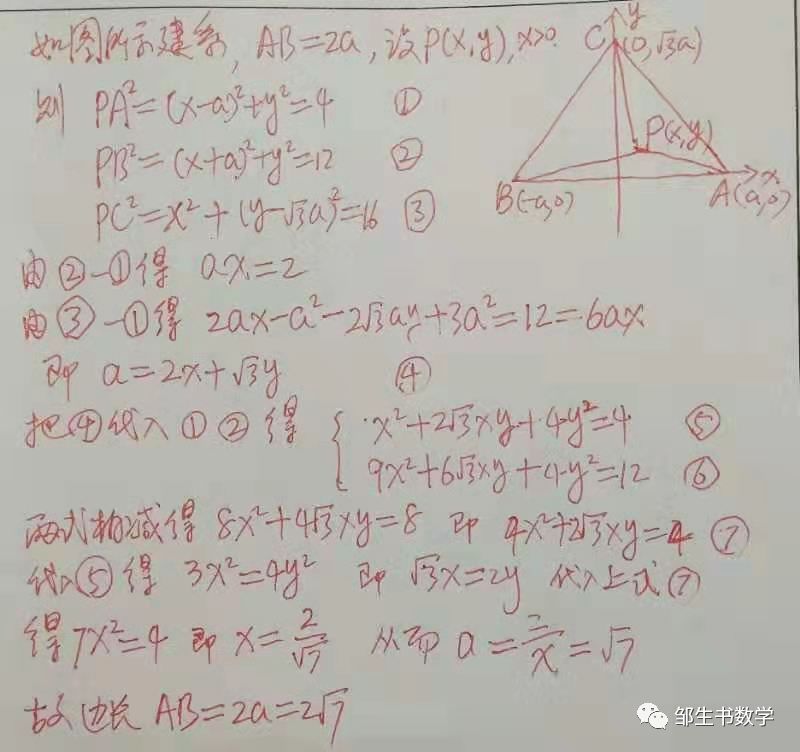 如图所示建系, AB=2a, 设P(x,y), x>0.
则 PA²=(x-a)²+y²=4 ①
PB²=(x+a)²+y²=12 ②
PC²=x²+(y-√3a)²=16 ③
y
C (0,√3a)
P(x,y)
x
B(-a,0)
A(a,0)
由②-①得 ax=2
由③-①得 2ax-a²-2√3ay+3a²=12=6ax
即 a=2x+√3y ④
把④代入①②得 { x²+2√3xy+4y²=4 ⑤
9x²+6√3xy+4y²=12 ⑥
两式相减得 8x²+4√3xy=8 即 4x²+2√3xy=4 ⑦
代入⑤得 3x²=4y² 即 √3x=2y 代入上式⑦
得 7x²=4 即 x=2/√7 从而 a=2/x=√7
故边长 AB=2a=2√7
邹生书数学